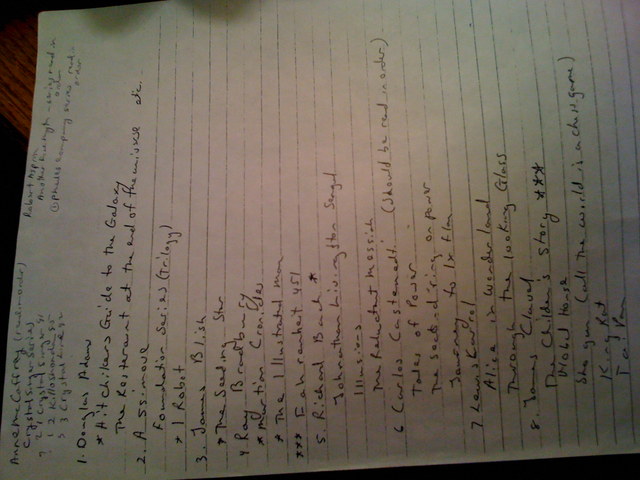 Anne McCaffrey (read in order)
Crystal Singer Series
? 2 Crystal Line
? 1 2 Killashandra 85
? 3 Crystal Line 92
Robert Asprin
Another fine myth - string read in order
@ Phules Company series read in order
1. Douglas Adams
* Hitchikers Guide to the Galaxy
The Resteraunt at the end of the universe etc.
2. Asimove
Foundation Series (trilogy)
* I Robot
3. James Blish
* The Seeding Star
4 Ray Bradbury
* Martian Cronicles
* The Illustrated man
*** Fahrenheit 451
5. Richard Bach *
Johnathan Livingston Seagul
Illusions
The Reluctant Messiah
6 Carlos Castanedi (should be read in order)
Tales of Power
The Second ring of power
Journey to Ixtlan
7 Lewis Karol
Alice in wonderland
Through the looking Glass
8. James Clavel
The Children's Story ***
Nobel House
Shogun (all the world is a chess game)
King Rat
Tai Pan